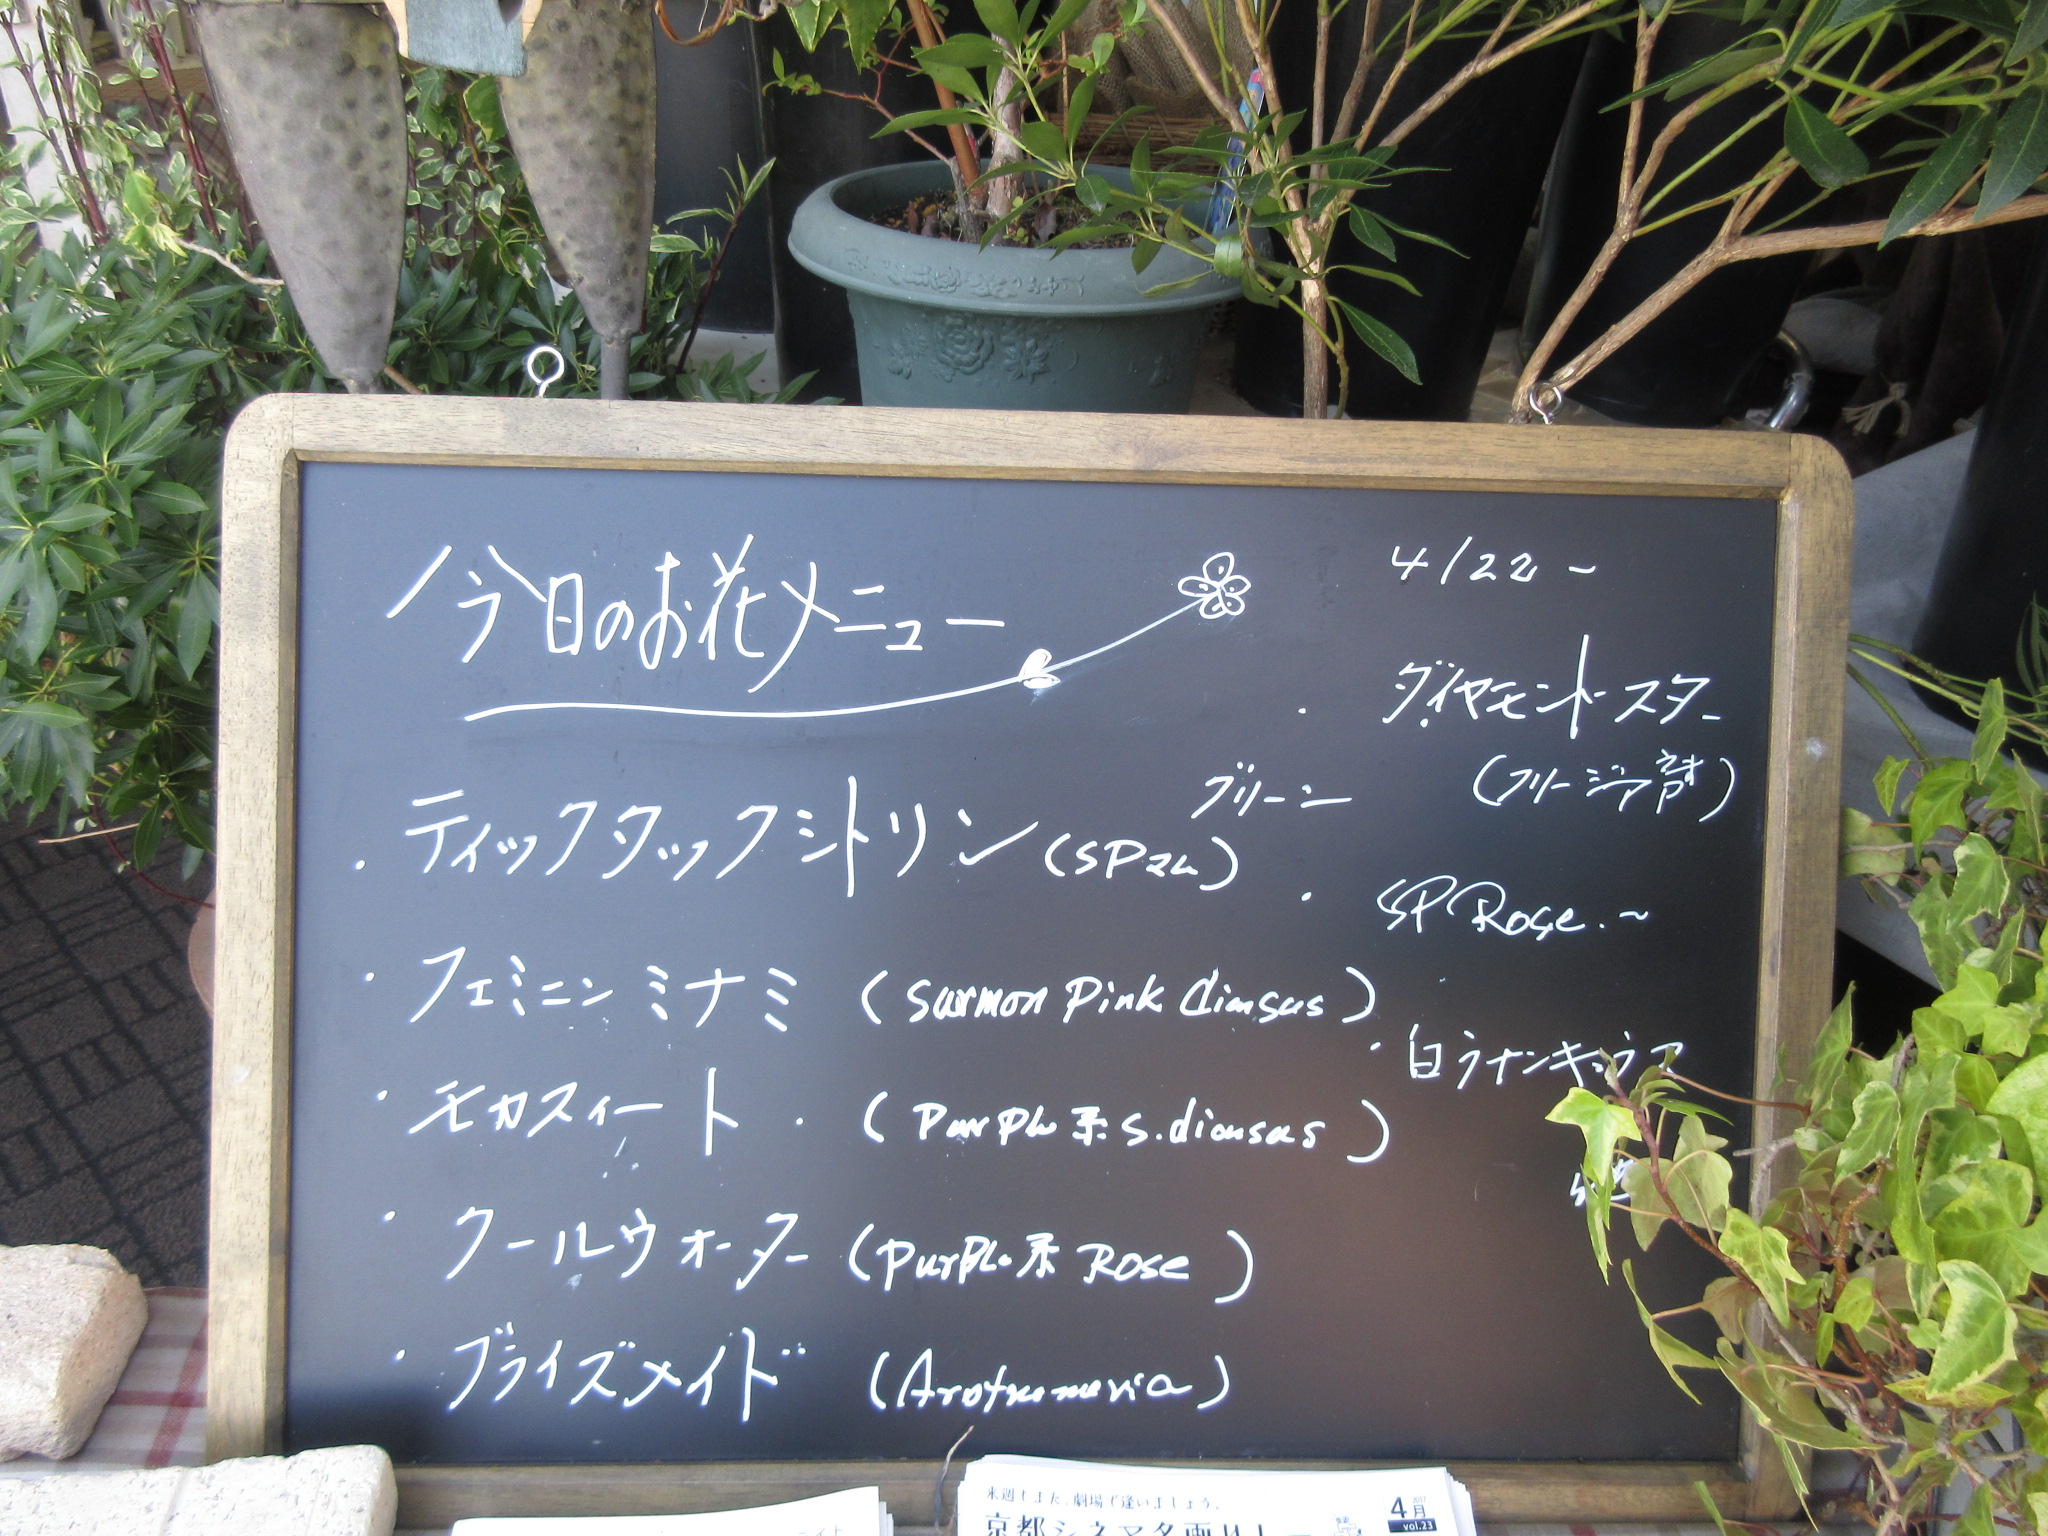 今日のお花メニュー
・ティックタックシトリン (SPマム)
グリーン
・フェミニン ミナミ (Surmon Pink diansas)
・モカスィート・(Purple系 S.diansas)
・クールウォーター (Purple系 Rose)
・ブライズメイド (Arotromeria)
4/22~
・ダイヤモンドスター
(フリージア咲)
・SP Rose.~
・白ラナンキュラス
来週もまた、劇場で逢いましょう。
京都シネマタ画ルー
2017
4月
vol.23